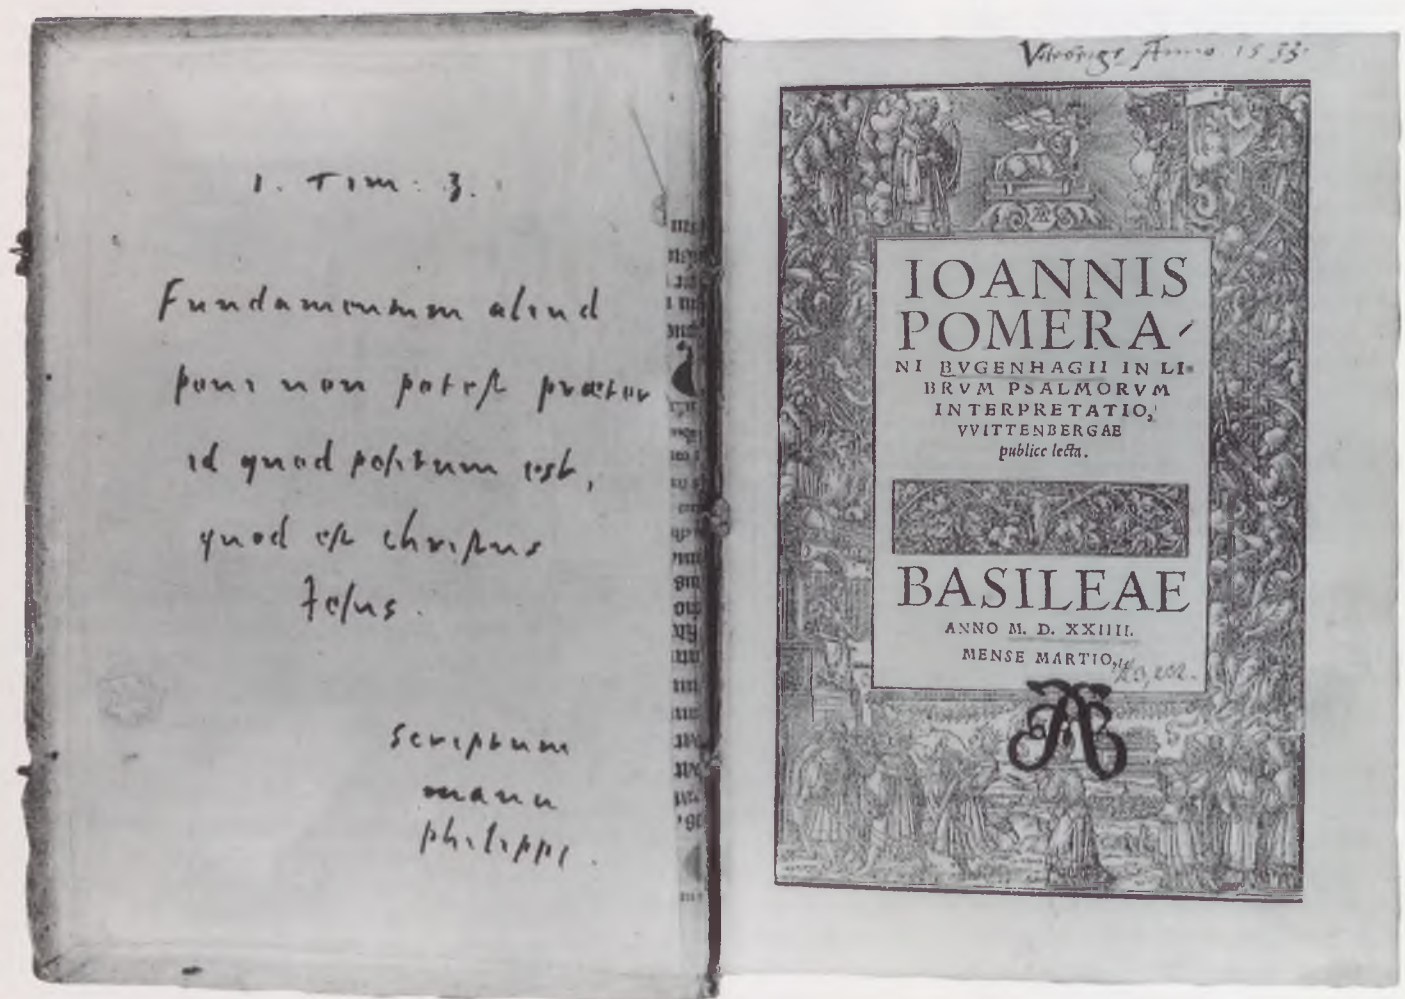 1. Tim. 3.
Fundamentum aliud
poni non potest præter
id quod positum est,
quod est christus
Jesus.
scriptum
manu
philippi.
Anno 1533.
IOANNIS
POMERA-
NI BVGENHAGII IN LI-
BRVM PSALMORVM
INTERPRETATIO,
VVITTENBERGAE
publice lecta.
BASILEAE
ANNO M. D. XXIIII.
MENSE MARTIO,